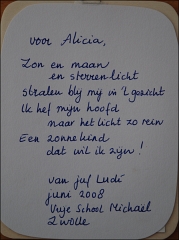 voor Alicia,
Zon en maan
en sterrenlicht
stralen blij mij in 't gezicht
Ik hef mijn hoofd
naar het licht zo rein
Een zonnekind
dat wil ik zijn!
van juf Ludi
juni 2008
Vrije School Michaël
Zwolle